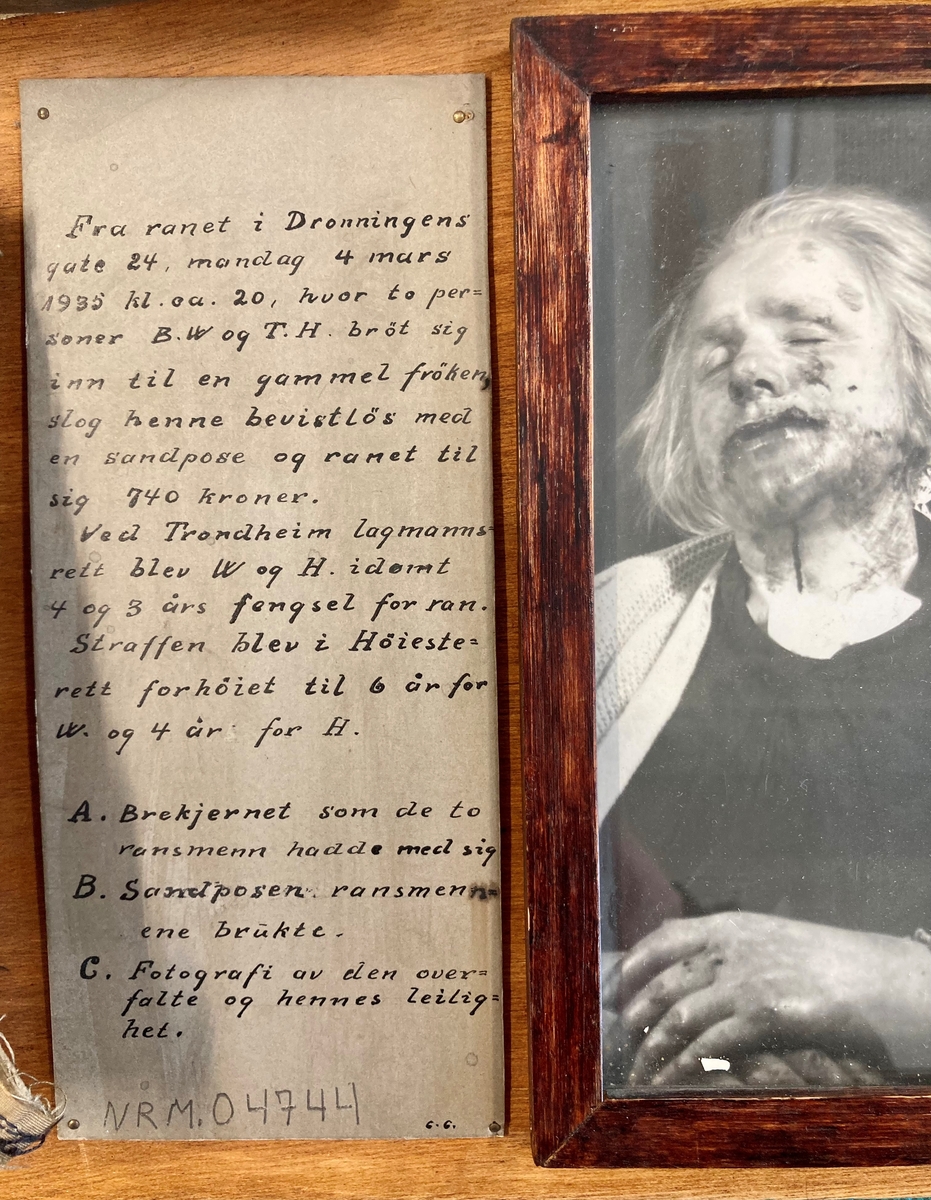 Fra ranet i Dronningens
gate 24, mandag 4 mars
1935 kl. ca. 20, hvor to per=
soner B.W og T.H. bröt sig
inn til en gammel fröken,
slog henne bevistlös med
en sandpose og ranet til
sig 740 kroner.
Ved Trondheim lagmanns=
rett blev W og H. idømt
4 og 3 års fengsel for ran.
Straffen blev i Höieste=
rett forhöiet til 6 år for
W. og 4 år for H.
A. Brekjernet som de to
ransmenn hadde med sig
B. Sandposen ransmenn=
ene brukte.
C. Fotografi av den over=
falte og hennes leilig=
het.
NRM.04744
G.G.